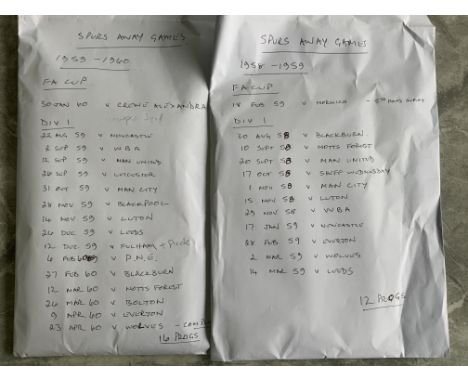 SPURS AWAY GAMES
1959 - 1960
FA CUP
30 JAN 60 v CREWE ALEXANDRA
DIV 1
22 AUG 59 v NEWCASTLE
2 SEP 59 v WBA
12 SEP 59 v MAN UNITED
26 SEP 59 v LEICESTER
31 OCT 59 v MAN CITY
28 NOV 59 v BLACKPOOL
14 NOV 59 v LUTON
26 DEC 59 v LEEDS
12 DEC 59 v FULHAM
6 FEB 60 v P.N.E.
27 FEB 60 v BLACKBURN
12 MAR 60 v NOTTS FOREST
26 MAR 60 v BOLTON
9 APR 60 v EVERTON
23 APR 60 v WOLVES -
16 PROGS
SPURS AWAY GAMES
1958 - 1959
FA CUP
18 FEB 59 v NORWICH -
DIV 1
30 AUG 58 v BLACKBURN
10 SEPT 58 v NOTTS FOREST
20 SEPT 58 v MAN UNITED
17 OCT 58 v SHEFF WEDNESDAY
1 NOV 58 v MAN CITY
15 NOV 58 v LUTON
29 NOV 58 v WBA
17 JAN 59 v NEWCASTLE
28 FEB 59 v EVERTON
2 MAR 59 v WOLVES
14 MAR 59 v LEEDS
12 PROGS